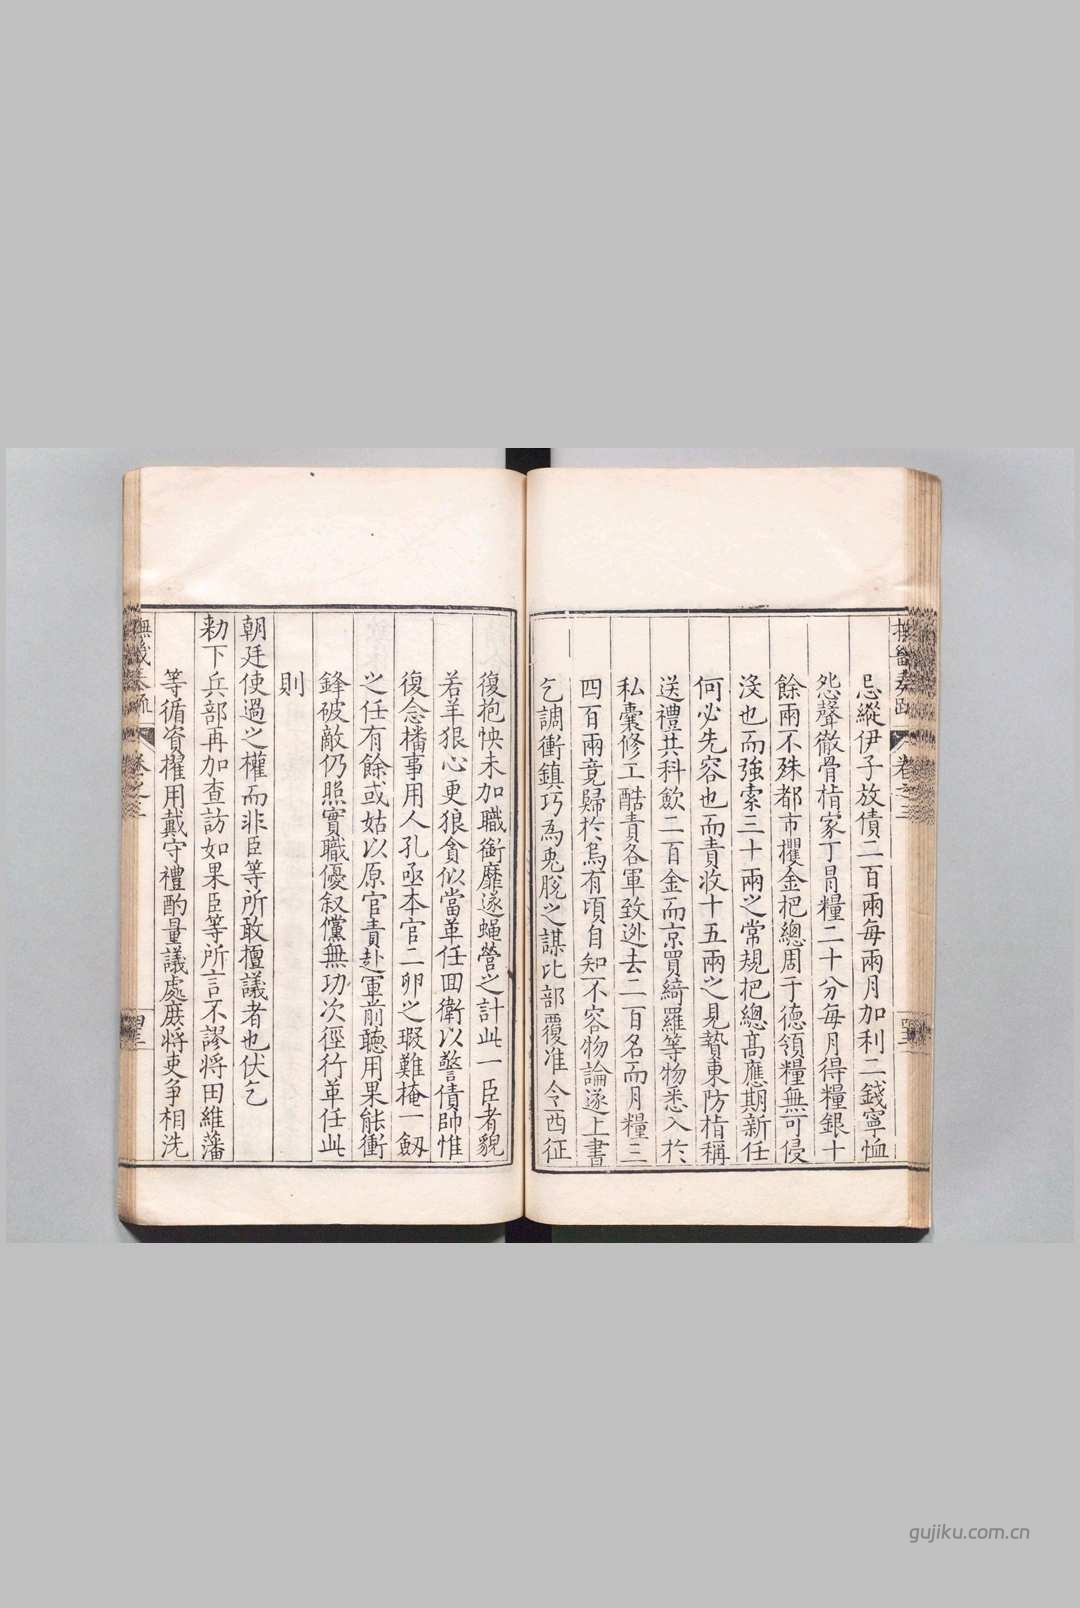 忌縱伊子放債二百兩每兩月加利二錢寧恤
怨聲徹骨楕家丁冐糧二十分每月得糧銀十
餘兩不殊都市攫金把總周于德領糧無可侵
沒也而強索三十兩之常規把總高應期新任
何必先容也而責收十五兩之見贄東防楕稱
送禮共科歛二百金而京買綺羅等物悉入於
私囊修工酷責各軍致迯去二百名而月糧三
四百兩竟歸於烏有頃自知不容物論遂上書
乞調衝鎮巧為兎脫之謀比部覆准令西征
復抱怏未加職銜靡遂蝇營之計此一臣者貌
若羊狠心更狼貪似當革任回衛以警債帥惟
復念播事用人孔亟本官二卵之瑕難掩一劔
之任有餘或姑以原官責赴軍前聽用果能衝
鋒破敵仍照實職優叙儻無功次徑行革任此
則
朝廷使過之權而非臣等所敢擅議者也伏乞
勑下兵部再加查訪如果臣等所言不謬將田維藩
等循資擢用戴守禮酌量議處庶將吏爭相洗
卷之三